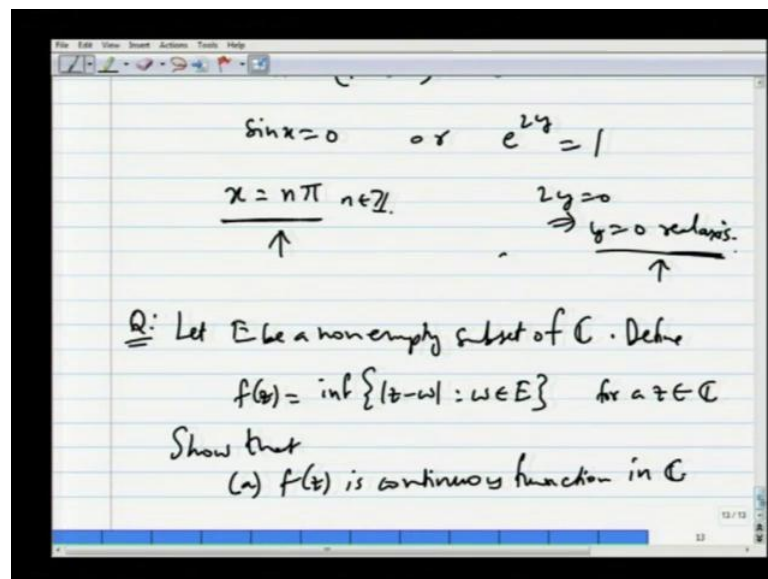 File Edit View Insert Actions Tools Help
sin x = 0 or e^{2y} = 1
x = nπ n ∈ ℤ. 2y = 0
↑ ⇒ y = 0 real axis.
↑
Q: Let E be a non empty subset of ℂ. Define
f(z) = inf {|z-w| : w ∈ E} for a z ∈ ℂ
Show that
(a) f(z) is continuous function in ℂ
13 / 13
13